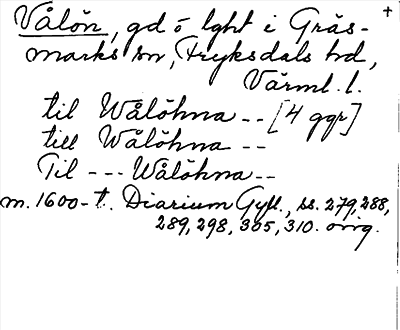 Vålön, gd o lght i Gräs-
marks sn, Fryksdals hd,
Värml. l.
til Wålöhna -- [4 ggr]
till Wålöhna --
Til --- Wålöhna --
m. 1600-t. Diarium Gyll., ss. 279, 288,
289, 298, 305, 310. orig.